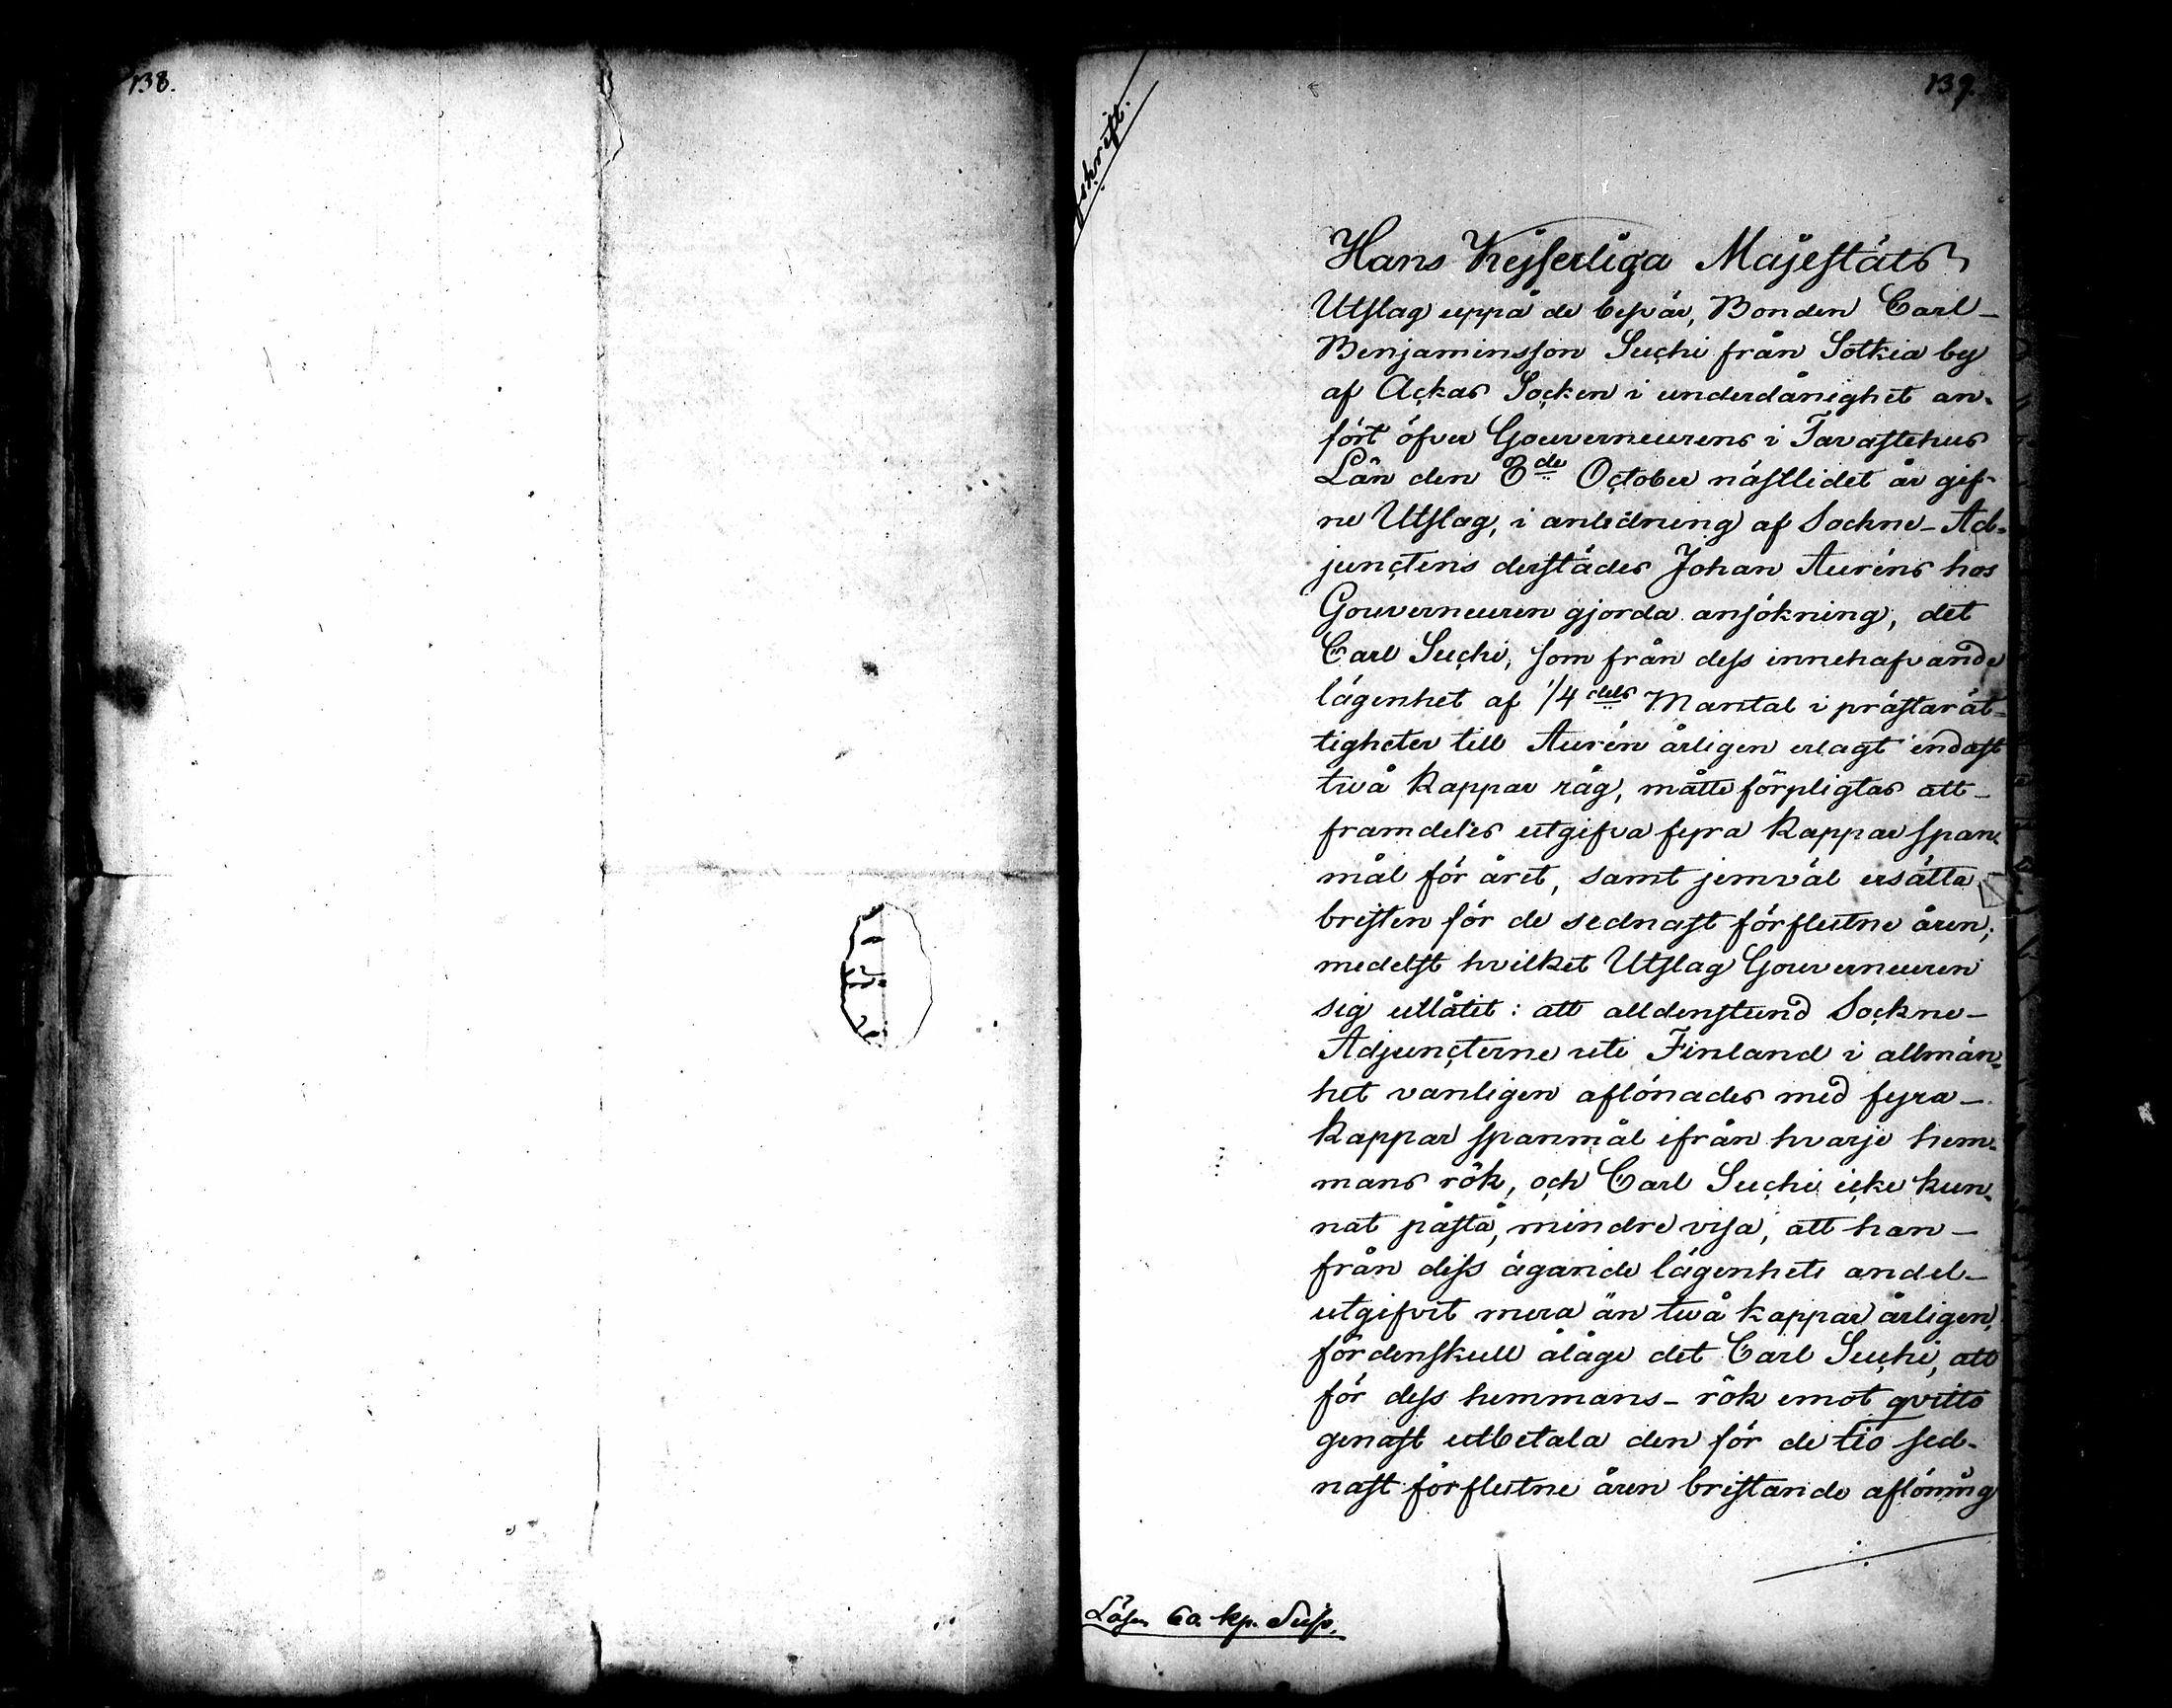 138.
139.
Hans Kejserliga Majestäts
Utslag uppå de besvär, Bonden Carl-
Benjaminsson Suchi från Sotkia by
af Ackas Socken i underdånighet an-
fört öfver Gouverneurens i Tavastehus
Län den 8de October nästlidet år gif-
ne Utslag, i anledning af Sockne-Ad-
junctens derstädes Johan Auréns hos
Gouverneuren gjorda ansökning, det
Carl Suchi, som från dess innehafvande
lägenhet af 1/4dels Mantal i prästarät-
tigheter till Aurén årligen erlagt endast
två kappar råg, måtte förpligtas att-
framdeles utgifva fyra kappar span-
mål för året, samt jemväl ersätta
bristen för de sednast förflutne åren;
medelst hvilket Utslag Gouverneuren
sig utlåtit: att alldenstund Sockne-
Adjuncterne uti Finland i allmän-
het vanligen aflönades med fyra-
kappar spanmål ifrån hvarje hem-
mans rök, och Carl Suchi icke kun-
nat påstå, mindre visa, att han-
från dess ägande lägenhets andel-
utgifvit mera än två kappar årligen,
fördenskull ålåge det Carl Suchi, att
för dess hemmans-rök emot qvitto
genast utbetala den för de tio sed-
nast förflutne åren bristande aflöning
Lösen 60. kp. Silfv.